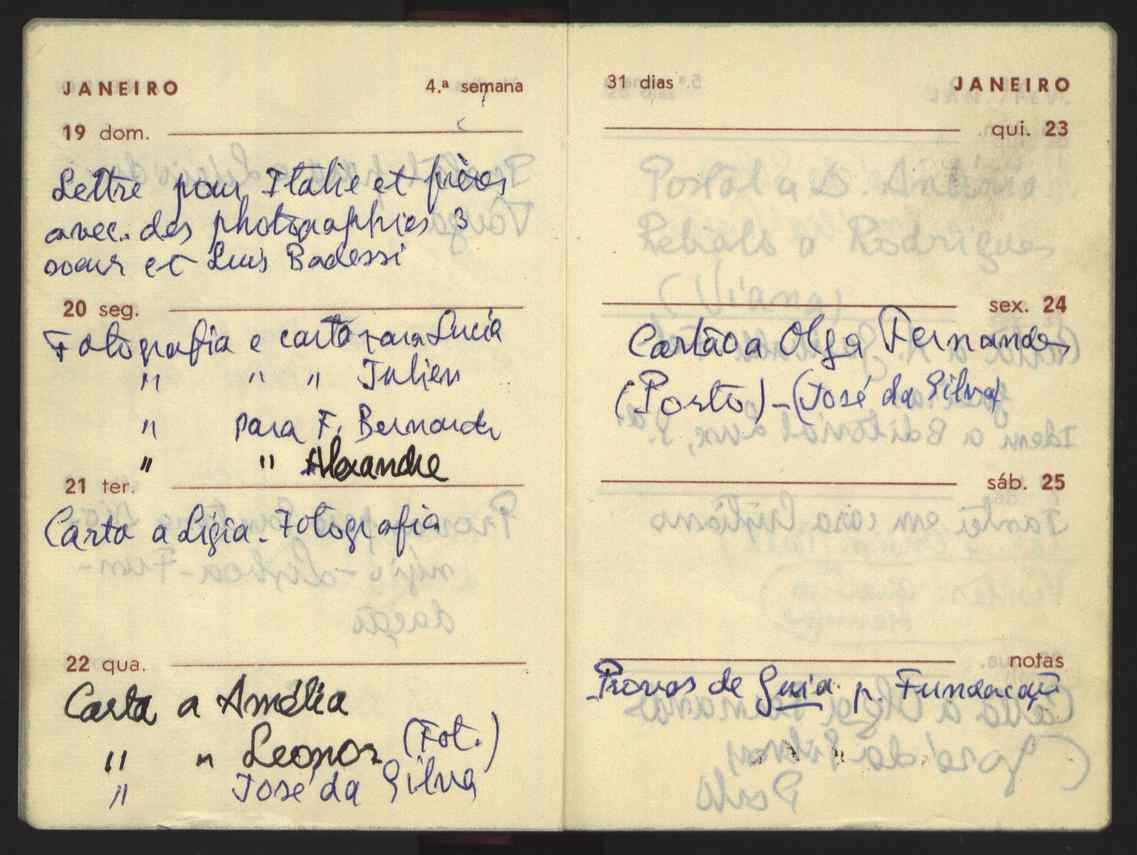 JANEIRO 4.ª semana
19 dom.
Lettre pour Italie et frères
avec. des photographies 3
soeur et Luis Badessi
20 seg.
Fotografia e carta para Lucia
" " " Julien
" para F. Bernardr
" " Alexandre
21 ter.
Carta a Ligia. Fotografia
22 qua.
Carta a Amélia
" " Leonor (Fot.)
" José da Silva
31 dias JANEIRO
qui. 23
sex. 24
Cartão a Olga Fernandes
(Porto) - (José da Silva)
sáb. 25
notas
Provas de Guia p. Fundação